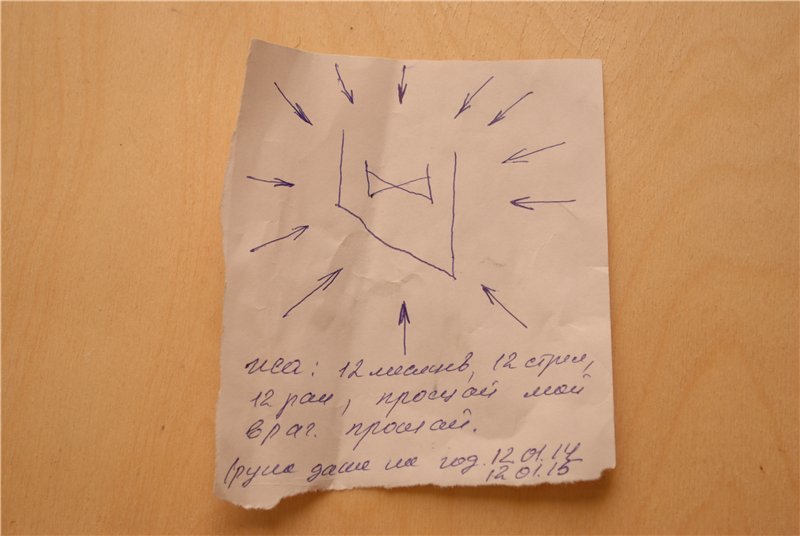 иса: 12 месяцев, 12 стрел,
12 ран, прощай мой
враг. прощай.
(руна даже на год. 12.01.14
12.01.15